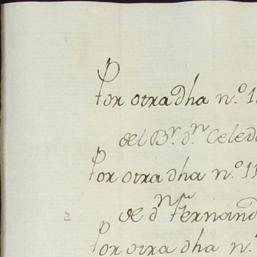 Por otra dha n.º 1
del B.r d.n Celed
Por otra dha n.º 11
de d.n Fernand
Por otra dha n.